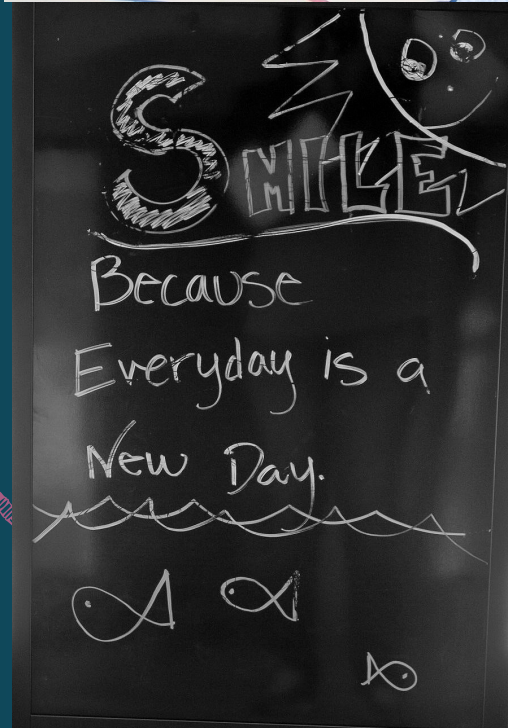 SMILE
Because
Everyday is a
New Day.